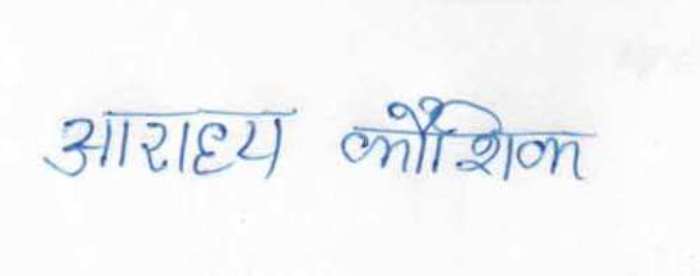 आराध्य कौशिक